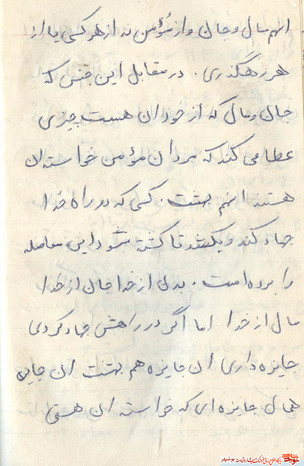 انهم مال و جان و از مؤمن نه از هر کسی یا از
هر رهگذری. در مقابل این جنس که
جان و مال که از خودتان هست چیزی
عطا می کند که مردان مؤمن خواستهٔ آن
هستند انهم بهشت. کسی که در راه خدا
جهاد کند و بکشد تا کشته شود این معامله
را برده است. بدن از خدا جان از خدا
مال از خدا اما اگر در راهش جهاد کردی
جایزه داری ان جایزه هم بهشت ان جایزه
همان جایزه ای که خواسته ان هستی